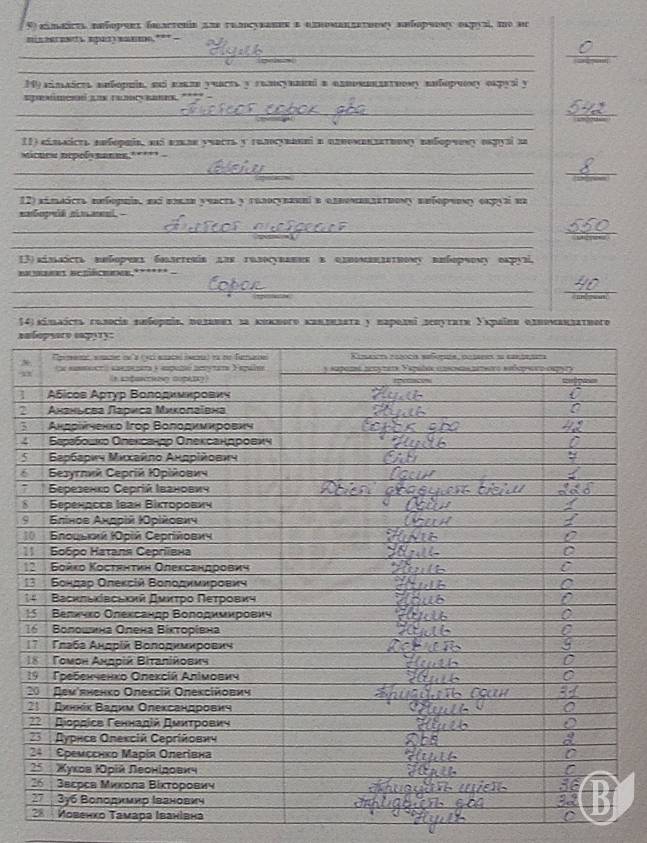 9) кількість виборчих бюлетенів для голосування в одномандатному виборчому окрузі, що не
підлягають врахуванню,*** –
Нуль 0
(прописом) (цифрами)
10) кількість виборців, які взяли участь у голосуванні в одномандатному виборчому окрузі у
приміщенні для голосування, **** –
П'ятсот сорок два 542
(прописом) (цифрами)
11) кількість виборців, які взяли участь у голосуванні в одномандатному виборчому окрузі за
місцем перебування,***** –
Вісім 8
(прописом) (цифрами)
12) кількість виборців, які взяли участь у голосуванні в одномандатному виборчому окрузі на
виборчій дільниці, –
П'ятсот п'ятдесят 550
(прописом) (цифрами)
13) кількість виборчих бюлетенів для голосування в одномандатному виборчому окрузі,
визнаних недійсними,****** –
Сорок 40
(прописом) (цифрами)
14) кількість голосів виборців, поданих за кожного кандидата у народні депутати України одномандатного
виборчого округу:
№ Прізвище, власне ім'я (усі власні імена) та по батькові Кількість голосів виборців, поданих за кандидата
(за наявності) кандидата у народні депутати України у народні депутати України одномандатного виборчого округу
(в алфавітному порядку) прописом цифрами
1 Абісов Артур Володимирович Нуль 0
2 Ананьєва Лариса Миколаївна Нуль 0
3 Андрійченко Ігор Володимирович Сорок два 42
4 Барабошко Олександр Олександрович Нуль 0
5 Барбарич Михайло Андрійович Сім 7
6 Безуглий Сергій Юрійович Один 1
7 Березенко Сергій Іванович Двісті двадцять вісім 228
8 Берендєєв Іван Вікторович Один 1
9 Блінов Андрій Юрійович Один 1
10 Блоцький Юрій Сергійович Нуль 0
11 Бобро Наталя Сергіївна Нуль 0
12 Бойко Костянтин Олександрович Нуль 0
13 Бондар Олексій Володимирович Нуль 0
14 Васильківський Дмитро Петрович Нуль 0
15 Величко Олександр Володимирович Нуль 0
16 Волошина Олена Вікторівна Нуль 0
17 Глаба Андрій Володимирович Дев'ять 9
18 Гомон Андрій Віталійович Нуль 0
19 Гребенченко Олексій Алімович Нуль 0
20 Дем'яненко Олексій Олексійович Тридцять один 31
21 Динник Вадим Олександрович Нуль 0
22 Діордієв Геннадій Дмитрович Нуль 0
23 Дурнєв Олексій Сергійович Два 2
24 Єремєєнко Марія Олегівна Нуль 0
25 Жуков Юрій Леонідович Нуль 0
26 Звєрєв Микола Вікторович Тридцять шість 36
27 Зуб Володимир Іванович Тридцять два 32
28 Йовенко Тамара Іванівна Нуль 0